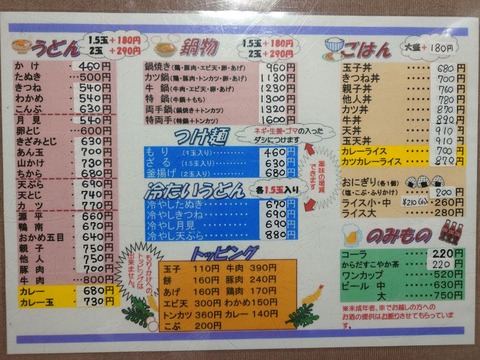 うどん
1.5玉+180円
2玉+290円
かけ 460円
たぬき 500円
きつね 540円
わかめ 540円
こんぶ 630円
月見 540円
卵とじ 580円
きざみとじ 630円
あん玉 700円
山かけ 730円
ちから 680円
天ぷら 730円
天とじ
カツ 770円
源平
鴨南 670円
おかめ五目
親子 750円
他人 750円
豚肉 700円
牛肉 800円
カレー 680円
カレー玉 730円
鍋物
1.5玉+180円
2玉+290円
鍋焼き(鶏・豚肉・エビ天・卵・あげ) 960円
カツ鍋(鶏・豚肉・トンカツ・卵・あげ)
牛鍋(牛肉・エビ天・卵・あげ)
特鍋(牛鍋+もち) 1300円
両手鍋(鍋焼き+トンカツ)
特両手(鍋焼き+トンカツ+もち)
つけ麺
ネギ・生姜・ゴマの入った
ダシにつけます
もり(1玉入り) 460円
ざる(1.5玉入り) 630円
釜揚げ(2玉入り) 680円
薬味の増量
できます
冷たいうどん
各1.5玉入り
冷やしたぬき 670円
冷やしきつね 690円
冷やし月見 690円
冷やし天ぷら 880円
トッピング
もりかけへの
トッピングは
出来ません。
玉子 110円 牛肉 390円
餅 160円 豚肉 240円
あげ 150円 鶏肉 170円
エビ天 300円 わかめ150円
トンカツ360円 カレー 140円
こぶ 200円
ごはん
大盛+180円
玉子丼 680円
きつね丼 700円
親子丼
他人丼 780円
カツ丼 870円
牛丼
天丼 910円
玉天丼 910円
カレーライス 700円
カツカレーライス 870円
おにぎり(各1個)
(塩・こぶ・ふりかけ) 200円
ライス小・中 ¥210(小) 260円
ライス大 280円
のみもの
コーラ 220円
からだすこやか茶 220円
ワンカップ 520円
ビール 中 630円
大 750円
※未成年者、車でお越しの方への
お酒の提供はお断りさせてもらっています。